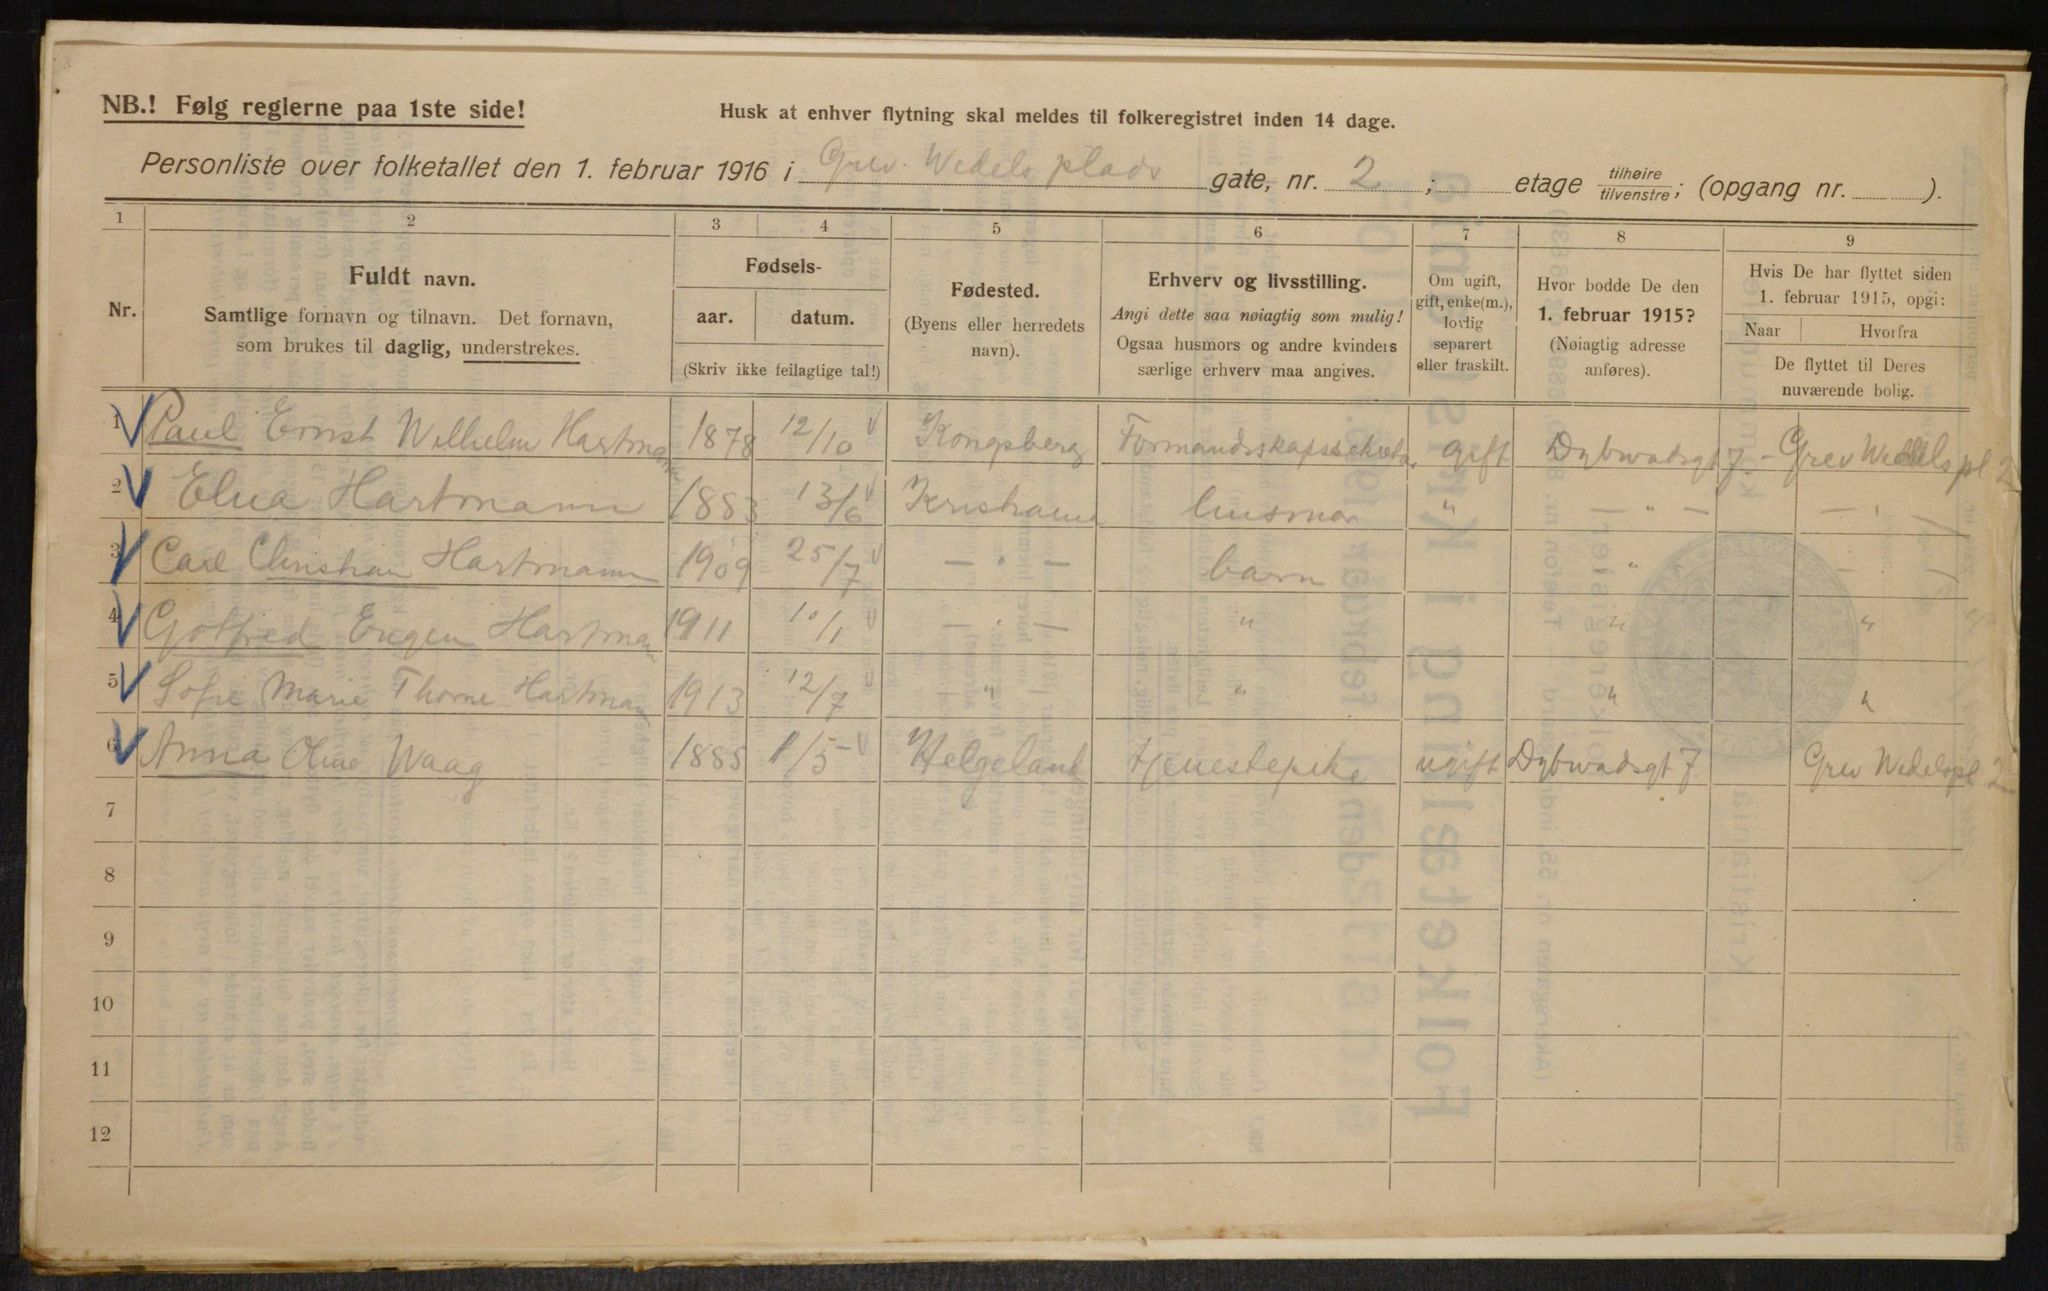 NB.! Følg reglerne paa 1ste side!
Husk at enhver flytning skal meldes til folkeregistret inden 14 dage.
Personliste over folketallet den 1. februar 1916 i Grev Wedels plads gate, nr. 2 ; etage tilhøire tilvenstre; (opgang nr. ).
1 2 3 4 5 6 7 8 9
Nr.
Fuldt navn.
Samtlige fornavn og tilnavn. Det fornavn,
som brukes til daglig, understrekes.
Fødsels-
aar. datum.
(Skriv ikke feilagtige tal!)
Fødested.
(Byens eller herredets
navn).
Erhverv og livsstilling.
Angi dette saa nøiagtig som mulig!
Ogsaa husmors og andre kvinders
særlige erhverv maa angives.
Om ugift,
gift, enke(m.),
lovlig
separert
eller fraskilt.
Hvor bodde De den
1. februar 1915?
(Nøiagtig adresse
anføres).
Hvis De har flyttet siden
1. februar 1915, opgi:
Naar Hvorfra
De flyttet til Deres
nuværende bolig.
1 Paul Ernst Wilhelm Hartmann 1878 12/10 Kongsberg Formandsskapssekretær gift Dybwadsgt 7. - Grev Wedels pl 2
2 Elna Hartmann 1883 13/6 Kristiania husmor " — " — — " —
3 Carl Christian Hartmann 1909 25/7 — " — barn "
4 Gotfred Eugen Hartmann 1911 10/1 — " — " " "
5 Sofie Marie Thorne Hartmann 1913 12/7 " " " "
6 Anna Oline Waag 1885 1/5 Helgeland tjenestepike ugift Dybwadsgt 7. Grev Wedelspl 2
7
8
9
10
11
12